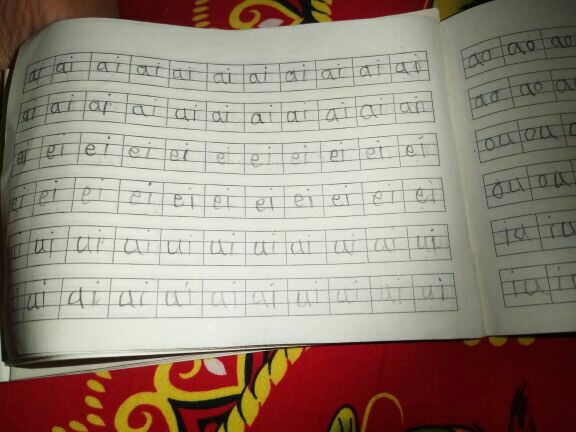 ai ai ai ai ai ai ai ai ai ai ai
ai ai ai ai ai ai ai ai ai ai ai
ei ei ei ei ei ei ei ei ei ei ei
ei ei ei ei ei ei ei ei ei ei ei
ui ui ui ui ui ui ui ui ui ui
ui ui ui ui ui ui ui ui ui ui
ao ao
ao ao
ou ou
ou ou
iu iu
iu